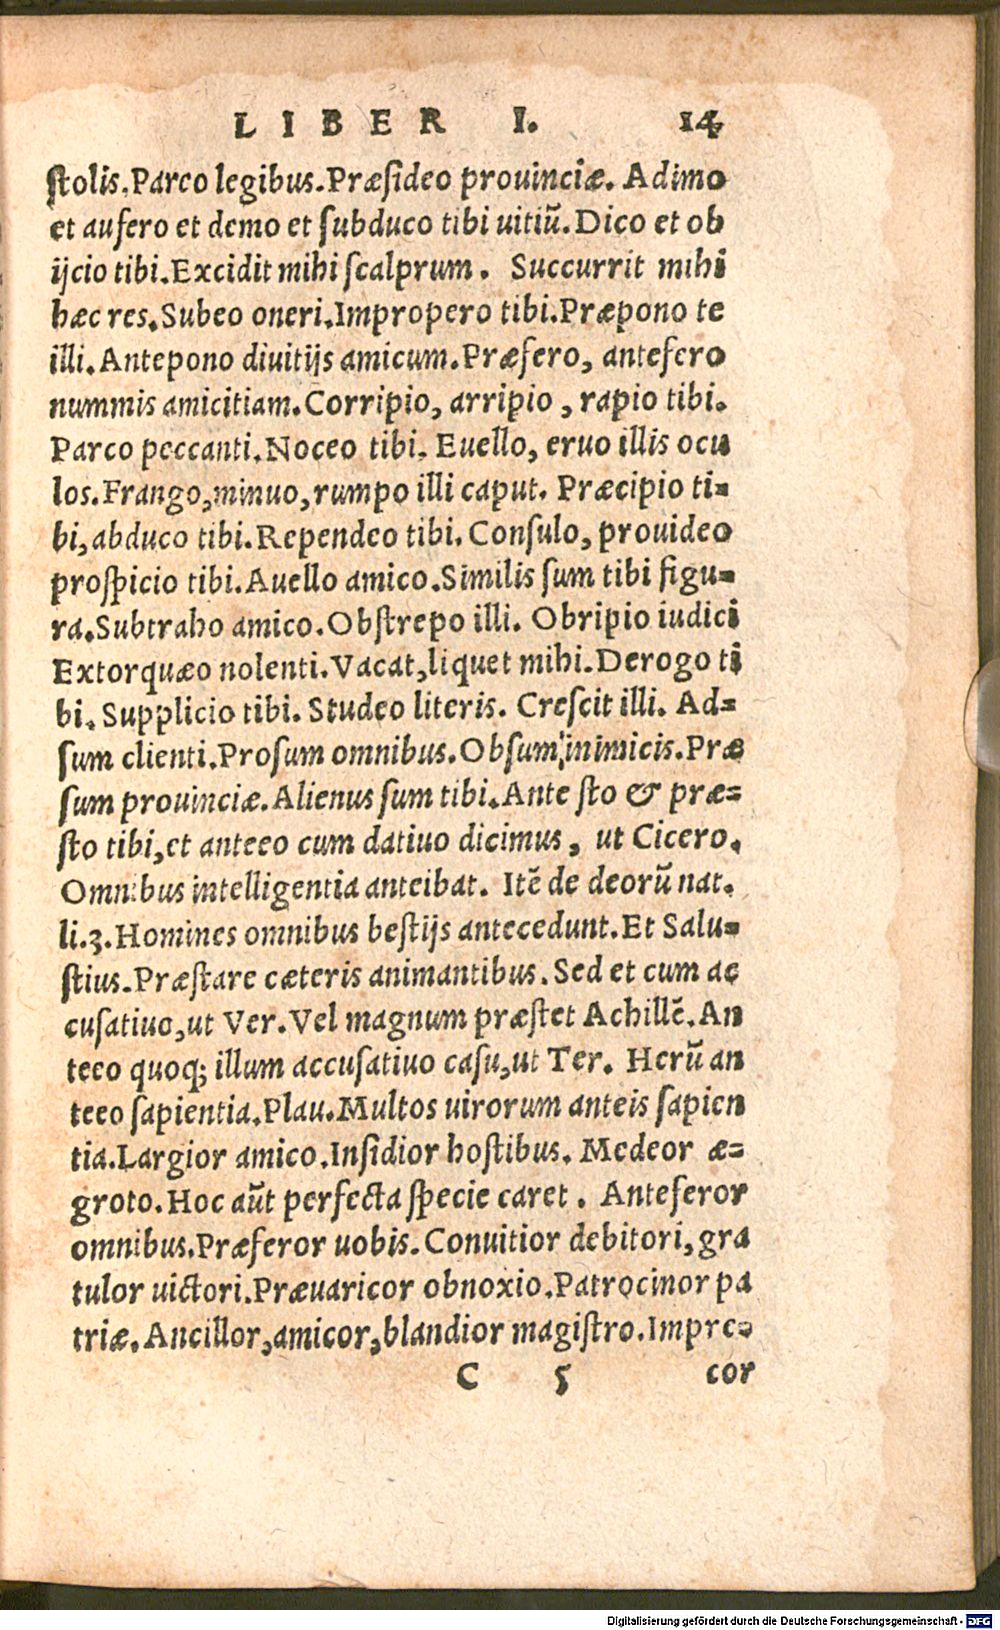 LIBER I. 14
stolis. Parco legibus. Præsideo prouinciæ. Adimo
et aufero et demo et subduco tibi uitiũ. Dico et ob
ijcio tibi. Excidit mihi scalprum. Succurrit mihi
hæc res. Subeo oneri. Impropero tibi. Præpono te
illi. Antepono diuitijs amicum. Præfero, antefero
nummis amicitiam. Corripio, arripio, rapio tibi.
Parco peccanti. Noceo tibi. Euello, eruo illis ocu
los. Frango, minuo, rumpo illi caput. Præcipio ti=
bi, abduco tibi. Rependeo tibi. Consulo, prouideo
prospicio tibi. Auello amico. Similis sum tibi figu=
ra. Subtraho amico. Obstrepo illi. Obripio iudici
Extorquæo nolenti. Vacat, liquet mihi. Derogo ti
bi. Supplicio tibi. Studeo literis. Crescit illi. Ad=
sum clienti. Prosum omnibus. Obsum inimicis. Præ
sum prouinciæ. Alienus sum tibi. Ante sto & præ=
sto tibi, et anteeo cum datiuo dicimus, ut Cicero.
Omnibus intelligentia anteibat. Itẽ de deorũ nat.
li.3. Homines omnibus bestijs antecedunt. Et Salu=
stius. Præstare cæteris animantibus. Sed et cum ac
cusatiuo, ut Ver. Vel magnum præstet Achillẽ. An
teeo quoq; illum accusatiuo casu, ut Ter. Herũ an
teeo sapientia. Plau. Multos uirorum anteis sapien
tia. Largior amico. Insidior hostibus. Medeor æ=
groto. Hoc aũt perfecta specie caret. Anteferor
omnibus. Præferor uobis. Conuitior debitori, gra
tulor uictori. Præuaricor obnoxio. Patrocinor pa
triæ. Ancillor, amicor, blandior magistro. Impre=
C 5 cor
Digitalisierung gefördert durch die Deutsche Forschungsgemeinschaft - DFG